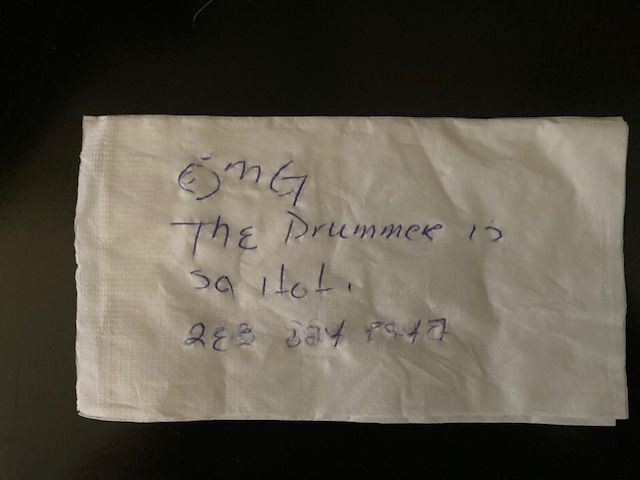 OMG
The Drummer is
so Hot.